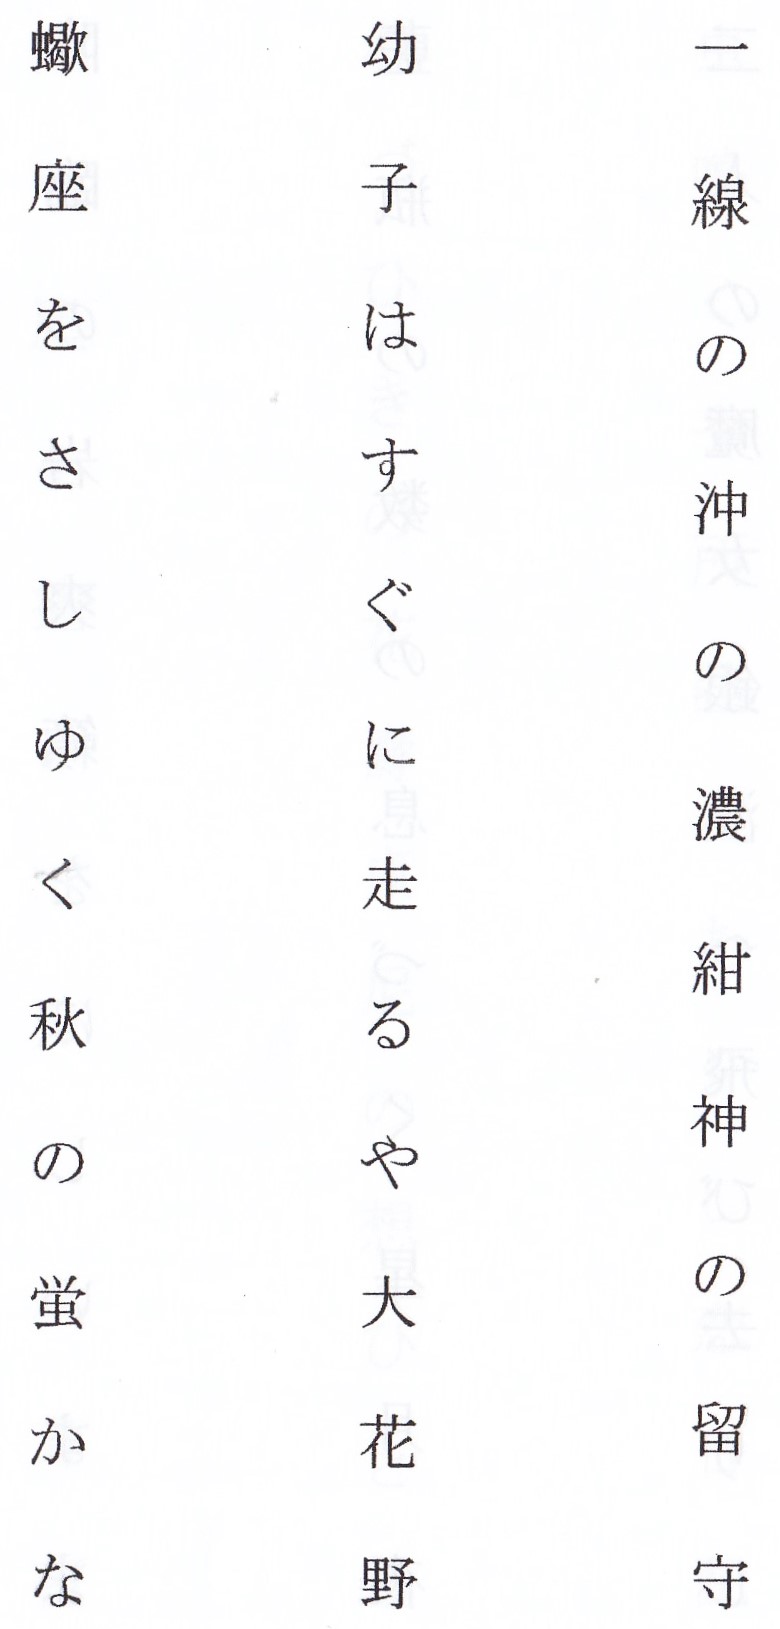 一線の沖の濃紺神の留守
幼子はすぐに走るや大花野
蠍座をさしゆく秋の蛍かな